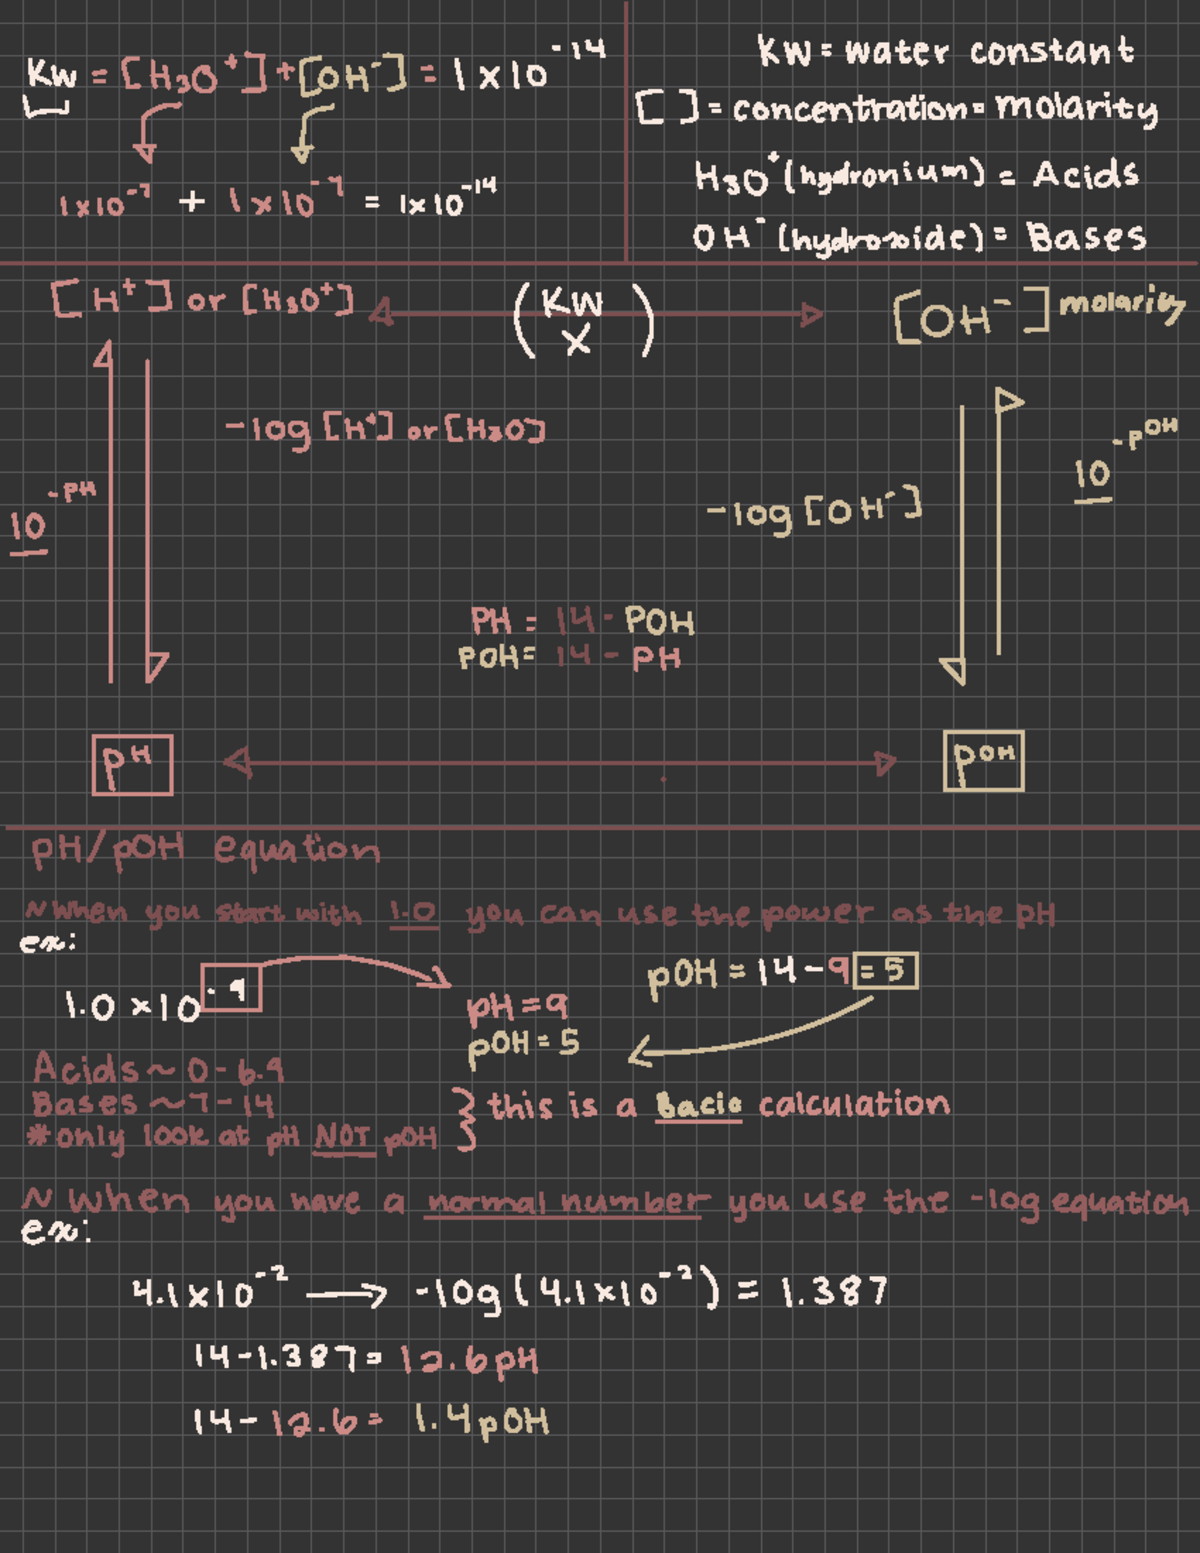 Kw = [H3O⁺] + [OH⁻] = 1 x 10⁻¹⁴
1x10⁻⁷ + 1 x 10⁻⁷ = 1x 10⁻¹⁴
KW = water constant
[ ] = concentration = molarity
H3O⁺ (hydronium) = Acids
OH⁻ (hydroxide) = Bases
[H⁺] or [H3O⁺]
(KW
X)
[OH⁻] molarity
-log [H⁺] or [H3O]
10⁻ᵖᴴ
-log [OH⁻]
10⁻ᵖᴼᴴ
PH = 14 - POH
POH = 14 - PH
pH
pOH
pH/pOH equation
~ When you start with 1.0 you can use the power as the pH
ex:
1.0 x10⁻⁹
pH = 9
pOH = 5
pOH = 14 - 9 = 5
Acids ~ 0 - 6.9
Bases ~ 7 - 14
*only look at pH NOT pOH
} this is a Bacic calculation
~ When you have a normal number you use the -log equation
ex:
4.1x10⁻² → -log (4.1x10⁻²) = 1.387
14-1.387 = 12.6 pH
14 - 12.6 = 1.4 pOH